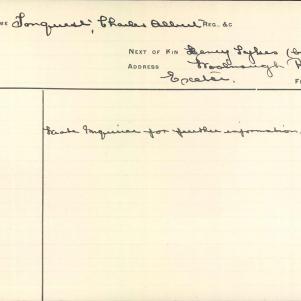 Tonquest, Charles Albert REG. &C
NEXT OF KIN Henry Sykes
ADDRESS
Exeter.
Inquiries for further information